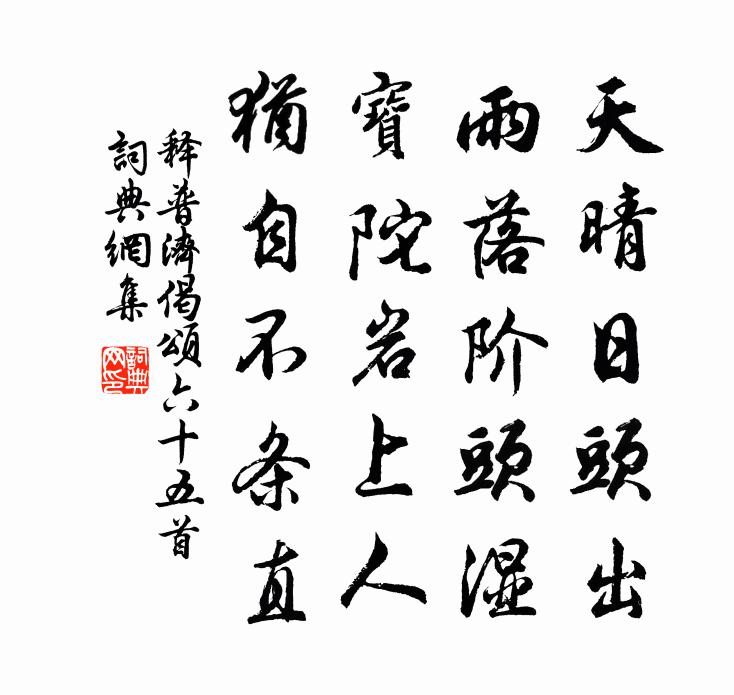 天晴日頭出
雨落阶頭湿
寶陀岩上人
猶自不条直
释普濟偈頌六十五首
詞典網集
詞典網印